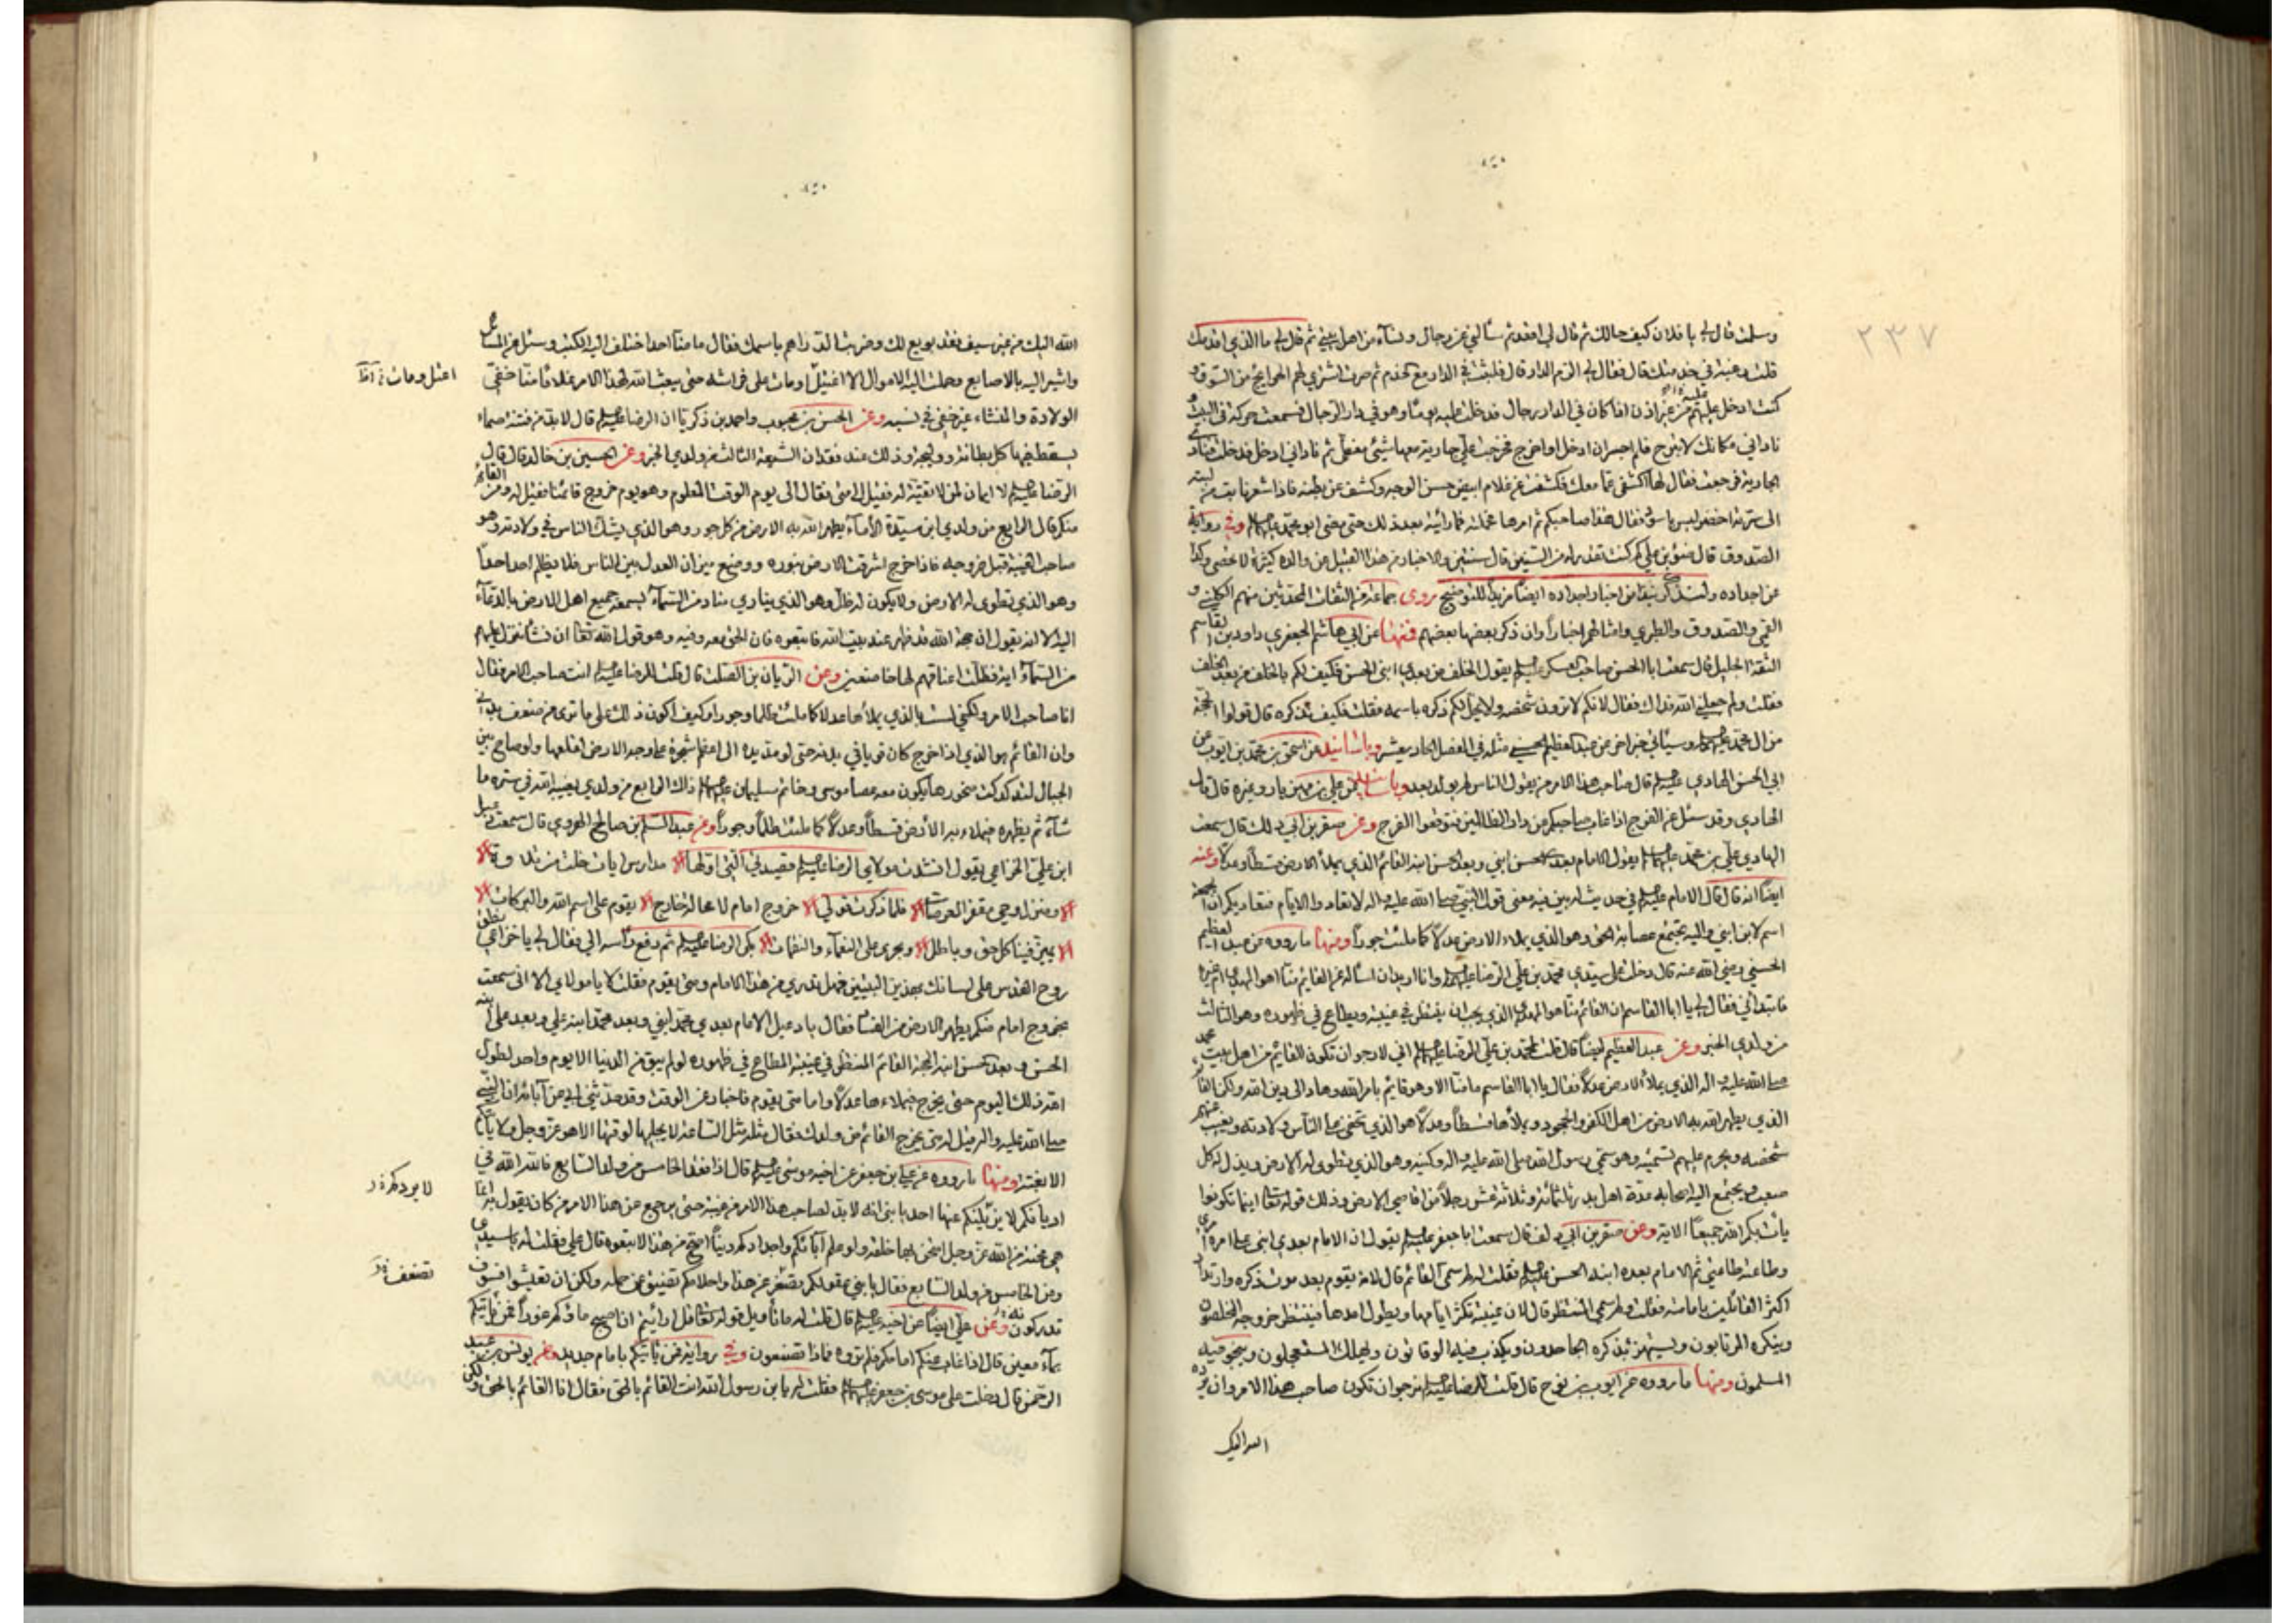 ٢٣٧
وسلمت قال لي يا فلان كيف حالك ثم قال لي اقعد ثم سألني عن رجال ونساء من اهل بيتي ثم قال لي ما الذي اقدمك
قلت رغبة في خدمتك قال فقال لي الزم الدار قال فلبثت في الدار مع الخدم ثم صرت اشتري لهم الحوائج من السوق و
كنت ادخل عليه من غير اذن اذا كان في الدار رجال فدخلت عليه يوما وهو في دار الرجال فسمعت حركة في البيت و
ناداني مكانك لا تبرح فلم اجسر ان ادخل او اخرج فخرجت علي جارية معها شيئ مغطى ثم ناداني ادخل فدخلت ونادى
الجارية فرجعت فقال لها اكشفي عما معك فكشفت عن غلام ابيض حسن الوجه وكشف عن بطنه فاذا شعر نابت من لبته
الى سرته اخضر ليس باسود فقال هذا صاحبكم ثم امرها فحملته فما رأيته بعد ذلك حتى مضى ابو محمد عليهما السلم وفي رواية
الصدوق قال ضوء بن علي كم كنت تقدر له من السنين قال سنتين والاخبار من هذا القبيل عن والده كثيرة لا تحصى وكذا
عن اجداده ولنذكر نبذا من اخبار اجداده ايضا مزيدا للتوضيح روى جماعة من الثقات المحدثين منهم الكليني و
القمي والصدوق والطبري وامثالهم اخبارا وان ذكر بعضها بعضهم فمنها عن ابي هاشم الجعفري داود بن القاسم
الثقة الجليل قال سمعت ابا الحسن صاحب العسكر عليه السلم يقول الخلف من بعدي ابني الحسن فكيف لكم بالخلف من بعد الخلف
فقلت ولم جعلني الله فداك فقال لانكم لا ترون شخصه ولا يحل لكم ذكره باسمه فقلت فكيف نذكره قال قولوا الحجة
من ال محمد عليهم السلم وسيأتي خبر اخر عن عبد العظيم الحسني مثله في الفصل الحاديعشر وباسانيد عن اسحق بن محمد بن ايوب عن
ابي الحسن الهادي عليه السلم قال صاحب هذا الامر من يقول الناس لم يولد بعد وباسانيد عن علي بن مهزيار وغيره قال قال
الهادي وقد سئل عن الفرج اذا غاب صاحبكم من دار الظالمين فتوقعوا الفرج وعن صقر بن ابي دلف قال سمعت
الهادي علي بن محمد عليهما السلم يقول الامام بعدي الحسن ابني وبعد الحسن ابنه القائم الذي يملأ الارض قسطا وعدلا وعنه
ايضا انه قال قال الامام عليه السلم في حديث له يبين فيه معنى قول النبي صلى الله عليه واله لا تعادوا الايام فتعاديكم ان الجمعة
اسم لابن ابني واليه تجتمع عصابة الحق وهو الذي يملاء الارض عدلا كما ملئت جورا ومنها ما رووه عن عبد العظيم
الحسني رضي الله عنه قال دخلت على سيدي محمد بن علي الرضا عليهما السلم وانا اريد ان اسأله عن القائم منا اهو المهدي ام غيره
فابتدأني فقال لي يا ابا القاسم ان القائم منا هو المهدي الذي يجب ان ينتظر في غيبته ويطاع في ظهوره وهو الثالث
من ولدي الخبر وعن عبد العظيم ايضا قال قلت لمحمد بن علي الرضا عليهما السلم اني لارجو ان تكون القائم من اهل بيت محمد
صلى الله عليه واله الذي يملأ الارض عدلا فقال يا ابا القاسم ما منا الا وهو قائم بامر الله وهاد الى دين الله ولكن القائم
الذي يطهر الله به الارض من اهل الكفر والجحود ويملأها قسطا وعدلا هو الذي تخفى على الناس ولادته ويغيب عنهم
شخصه ويحرم عليهم تسميته وهو سمي رسول الله صلى الله عليه واله وكنيه وهو الذي تطوى له الارض ويذل له كل
صعب ويجتمع اليه اصحابه عدة اهل بدر ثلثمائة وثلاثة عشر رجلا من اقاصي الارض وذلك قوله تعالى اينما تكونوا
يأت بكم الله جميعا الاية وعن صقر بن ابي دلف قال سمعت ابا جعفر عليه السلم يقول ان الامام بعدي ابني علي امره امري
وطاعته طاعتي ثم الامام بعده ابنه الحسن عليه السلم فقلت له لم سمي القائم قال لانه يقوم بعد موت ذكره وارتداد
اكثر القائلين بامامته فقلت ولم سمي المنتظر قال لان غيبته تكثر ايامها ويطول امدها فينتظر خروجه المخلصون
وينكره المرتابون ويستهزئ بذكره الجاحدون ويكذب فيه الوقاتون ويهلك المستعجلون وينجو فيه
المسلمون ومنها ما رووه عن ايوب بن نوح قال قلت للرضا عليه السلم نرجو ان تكون صاحب هذا الامر وان يرده
الله اليك
الله اليك من غير سيف فقد بويع لك وضربت الدراهم باسمك فقال ما منا احد اختلف اليه الكتب وسئل عن المسائل
واشير اليه بالاصابع وحملت اليه الاموال الا اغتيل او مات على فراشه حتى يبعث الله لهذا الامر غلاما منا خفي
الولادة والمنشاء غير خفي في نسبه وعن الحسن بن محبوب واحمد بن زكريا ان الرضا عليه السلم قال لا بد من فتنة صماء
يسقط فيها كل بطانة ووليجة وذلك عند فقدان الشيعة الثالث من ولدي الخبر وعن الحسين بن خالد قال قال
الرضا عليه السلم لا ايمان لمن لا تقية له فقيل الى متى فقال الى يوم الوقت المعلوم وهو يوم خروج قائمنا فقيل له ومن القائم
منكم قال الرابع من ولدي ابن سيدة الاماء يطهر الله به الارض من كل جور وهو الذي يشك الناس في ولادته وهو
صاحب الغيبة قبل خروجه فاذا خرج اشرقت الارض بنوره ووضع ميزان العدل بين الناس فلا يظلم احد احدا
وهو الذي تطوى له الارض ولا يكون له ظل وهو الذي ينادي مناد من السماء يسمعه جميع اهل الارض بالدعاء
اليه الا انه يقول ان حجة الله قد ظهر عند بيت الله فاتبعوه فان الحق معه وفيه وهو قول الله تعالى ان نشأ ننزل عليهم
من السماء اية فظلت اعناقهم لها خاضعين وعن الريان بن الصلت قال قلت للرضا عليه السلم انت صاحب الامر فقال
انا صاحب الامر ولكني لست بالذي يملأها عدلا كما ملئت ظلما وجورا وكيف اكون ذلك على ما ترى من ضعف بدني
وان القائم هو الذي اذا خرج كان قويا في بدنه حتى لو مد يده الى اعظم شجرة على وجه الارض لقلعها ولو صاح بين
الجبال لتدكدكت صخورها يكون معه عصا موسى وخاتم سليمان عليهما السلم ذاك الرابع من ولدي يغيبه الله في ستره ما
شاء ثم يظهره فيملاء به الارض قسطا وعدلا كما ملئت ظلما وجورا وعن عبد السلم بن صالح الهروي قال سمعت دعبل
ابن علي الخزاعي يقول انشدت مولاي الرضا عليه السلم قصيدتي التي اولها مدارس ايات خلت من تلاوة
ومنزل وحي مقفر العرصات فلما ذكرت قولي خروج امام لا محالة خارج يقوم على اسم الله والبركات
يميز فينا كل حق وباطل ويجزى على النعماء والنقمات بكى الرضا عليه السلم ثم رفع رأسه الي وقال لي يا خزاعي نطق
روح القدس على لسانك بهذين البيتين فهل تدري من هذا الامام ومتى يقوم فقلت لا يا مولاي الا اني سمعت
بخروج امام منكم يطهر الارض من الفساد فقال يا دعبل الامام بعدي محمد ابني وبعد محمد ابنه علي وبعد علي ابنه
الحسن وبعد الحسن ابنه الحجة القائم المنتظر في غيبته المطاع في ظهوره لو لم يبق من الدنيا الا يوم واحد لطول
الله ذلك اليوم حتى يخرج فيملاءها عدلا واما متى يقوم فاخبار عن الوقت وقد حدثني ابي عن آبائه ان النبي
صلى الله عليه واله قيل له متى يخرج القائم من ولدك فقال مثله مثل الساعة لا يجليها لوقتها الا هو عز وجل ولا يأتيكم
الا بغتة ومنها ما رووه عن علي بن جعفر عن اخيه موسى عليه السلم قال اذا فقد الخامس من ولد السابع فالله الله في
اديانكم لا يزيلنكم عنها احد يا بني انه لا بد لصاحب هذا الامر من غيبة حتى يرجع عن هذا الامر من كان يقول به انما
هي محنة من الله عز وجل امتحن بها خلقه ولو علم آباءكم واجدادكم دينا اصح من هذا لاتبعوه قال علي فقلت له يا سيدي
ومن الخامس من ولد السابع فقال يا بني عقولكم تصغر عن هذا واحلامكم تضيق عن حمله ولكن ان تعيشوا فسوف
تدركونه وعن علي ايضا عن اخيه عليه السلم قال قلت له ما تأويل قوله تعالى قل ارأيتم ان اصبح ماؤكم غورا فمن يأتيكم
بماء معين قال اذا غاب عنكم امامكم فلم تروه فماذا تصنعون وفي رواية فمن يأتيكم بامام جديد وعن يونس بن عبد
الرحمن قال دخلت على موسى بن جعفر عليهما السلم فقلت له يا بن رسول الله انت القائم بالحق فقال انا القائم بالحق ولكن